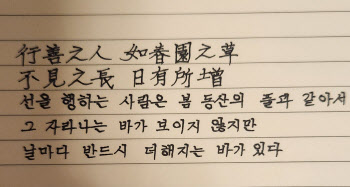 行善之人 如春園之草
不見之長 日有所增
선을 행하는 사람은 봄 동산의 풀과 같아서
그 자라나는 바가 보이지 않지만
날마다 반드시 더해지는 바가 있다